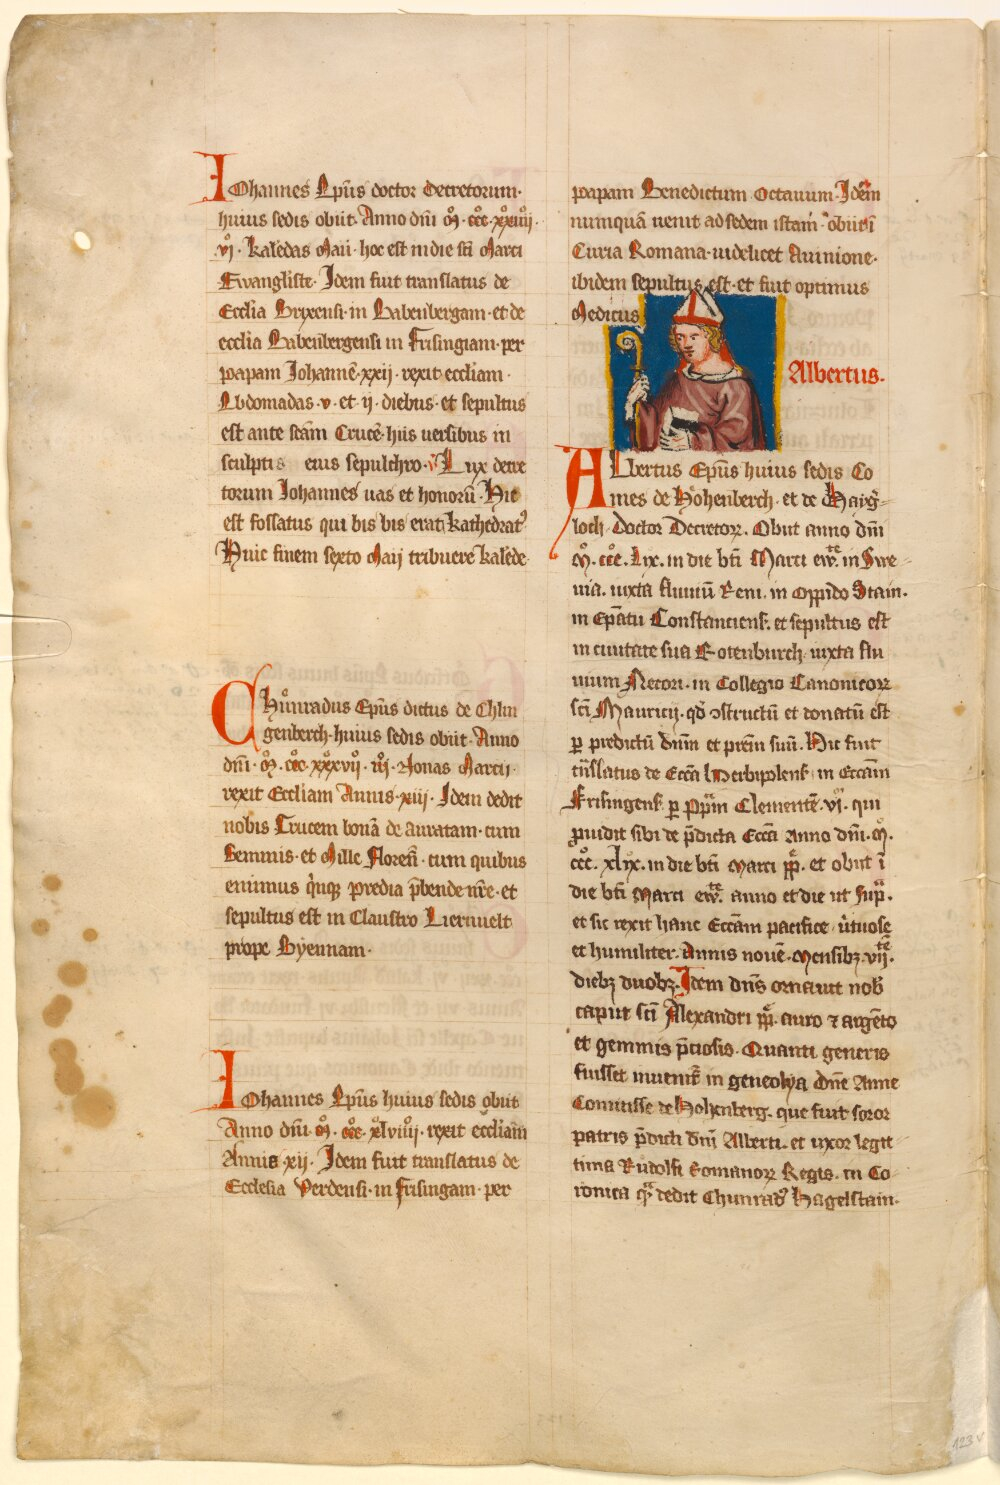 Iohannes Ep̄us doctor decretorum·
huius sedis obiit· Anno dn̄i · M̊· ccc̊· xxiiij̊·
vj̊· kalēdas Maii· hoc est in die sc̄i Marci
Ewangliste· Idem fuit translatus de
Ecclīa Brixensi· in Babenbergam· et de
ecclīa Babenbergensi in Frisingiam· per
papam Johannē· xxij· rexit eccl̄iam ·
Ebdomadas · v· et · ij· diebus· et sepultus
est ante scām Crucē· hiis uersibus in
sculptis eius sepulchro· v̊ Lux decre
torum Iohannes uas et honorū· Hic
est fossatus qui bis bis erat kathedratꝰ
Huic finem sexto Maij tribuere kalēde·
Chůnradus Ep̄us dictus de Chlin
genberch· huius sedis obiit· Anno
dn̄i· M̊· ccc̊· xxxvij̊· iiij̊· Nonas Marcij·
rexit Eccl̄iam Annis· xiij· Idem dedit
nobis Crucem bonā de auratam· cum
Gemmis· et Mille Floren̄· cum quibus
emimus q̊usq predia p̄bende nr̄e· et
sepultus est in Claustro Liernuelt
prope Byennam·
Iohannes Ep̄us huius sedis obiit
Anno dn̄i· M̊· ccc̊· xlviiij̊· rexit eccl̄iam
Annis· xij· Idem fuit translatus de
Ecclesia Verdensi· in Frisingam· per
papam Benedictum Octauum· Idem
numquā uenit ad sedem istam· obiit ī
Curia Romana· uidelicet Auinione·
ibidem sepultus est· et fuit optimus
Medicus
Albertus·
Albertus Ep̄us huius sedis Co
mes de Hohenberch· et de Hayg̈-
loch· Doctor Decretoꝝ· Obiit anno dn̄i
M̊· ccc̊· Lix· in die bt̄i Marci ew̄te· in Swe-
uia· iuxta fluuiū Reni· in oppido Stain·
in Ep̄atu Constanciens̄· et sepultus est
in ciuitate sua Rotenburch· iuxta flu
uium Necori· in Collegio Canonicoꝝ
sc̄i Mauricij· qd̄ ꝯstructū et donatū est
ꝑ predictū dn̄m et prēm suū· Hic fuit
tn̄slatus de Ecc̄a Herbipolens̄· in Ecc̄am
Frisingens̄· ꝑ Pp̄m Clementē· vj̊· qui
puidit sibi de p̄dicta Ecc̄a Anno dn̄i· M̊·
ccc̊· xlix̊· in die bt̄i Marci pp̄e· et obiit ī
die bt̄i Marci ew̄te· anno et die ut sup̄a·
et sic rexit hanc Ecc̄am pacifice· ūtuose
et humiliter· Annis nouē· Mensibꝫ· vij̄te·
diebꝫ duobꝫ· Idem dn̄s ornauit nob̄
caput sc̄i Alexandri pp̄e· auro ⁊ argēto
et gemmis p̄ciosis· Quanti generis
fuisset inueniᷓ in geneoloya dn̄e Anne
Comitisse de Hohenberg· que fuit soror
patris p̄dicti dn̄i Alberti· et uxor legit
tima Rudolfi Romanoꝝ Regis· in Co-
ronica qᷓ dedit Chunradꝰ Hagelstain·
123 v